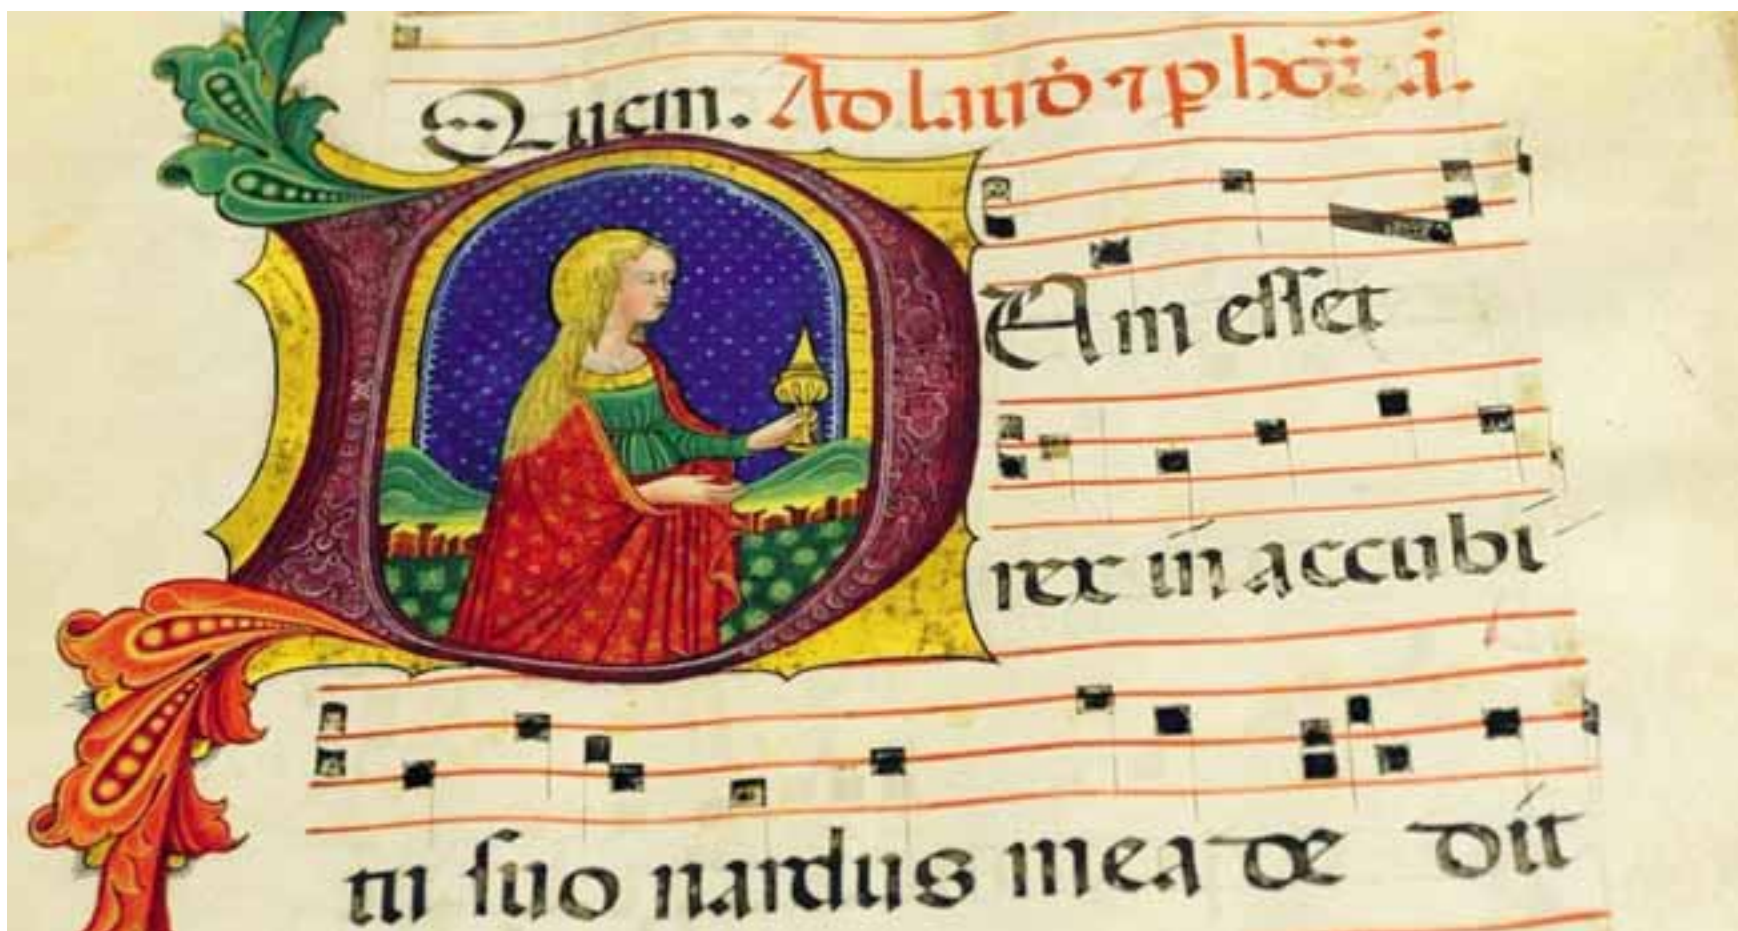 Quem. Ad laud ⁊ p hor
DUm eſſet
rex in accubi
tu ſuo nardus mea de dit